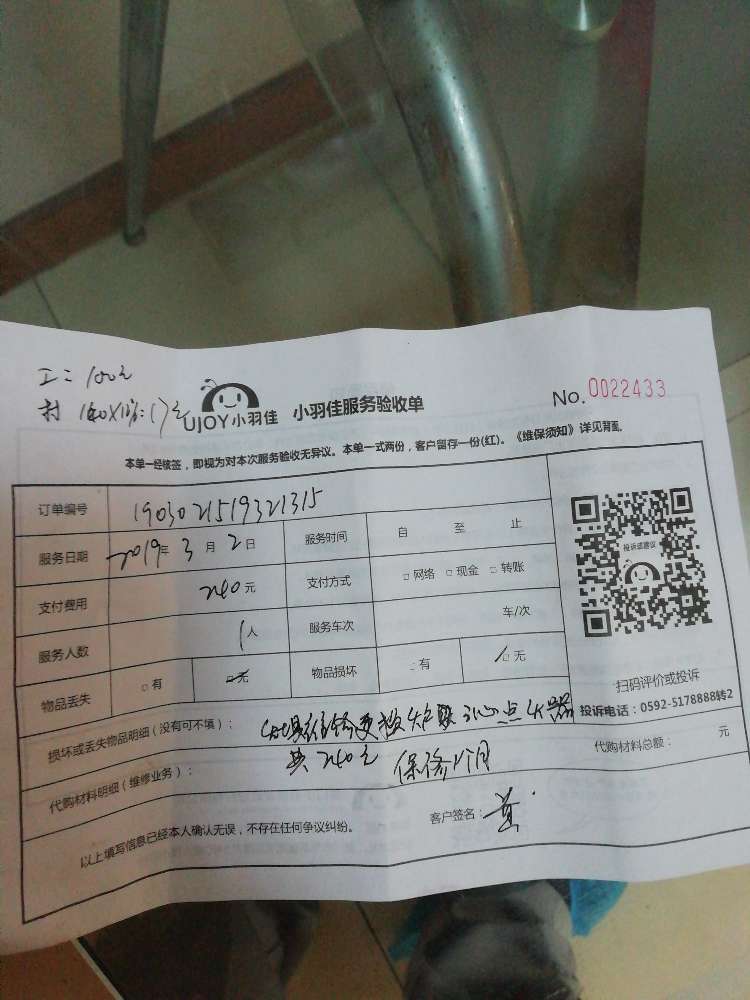 工：100元
UJOY小羽佳 小羽佳服务验收单 No. 0022433
本单一经核签，即视为对本次服务验收无异议。本单一式两份，客户留存一份(红)。《维保须知》详见背面。
订单编号 190302519321315
服务日期 2019年3月2日 服务时间 自 至 止
支付费用 240元 支付方式 □网络 □现金 □转账
服务人数 1人 服务车次 车/次
物品丢失 □有 □无 物品损坏 □有 □无
投诉或建议
扫码评价或投诉
投诉电话：0592-5178888转2
损坏或丢失物品明细（没有可不填）： 维修更换 点火器
共240元 保修1个月
代购材料明细（维修业务）： 代购材料总额： 元
以上填写信息已经本人确认无误，不存在任何争议纠纷。 客户签名：